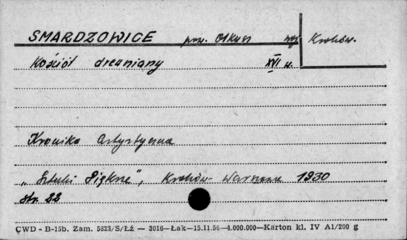 SMARDZOWICE pow. Olkusz woj. Kraków.
Kościół drewniany XVI w.
Kronika Artystyczna
„Sztuki Piękne", Kraków-Warszawa 1930
str. 22
CWD - B-15b. Zam. 5823/S/ŁŻ — 3016—Łak—15.11.56—4.000.000—Karton kl. IV A1/200 g